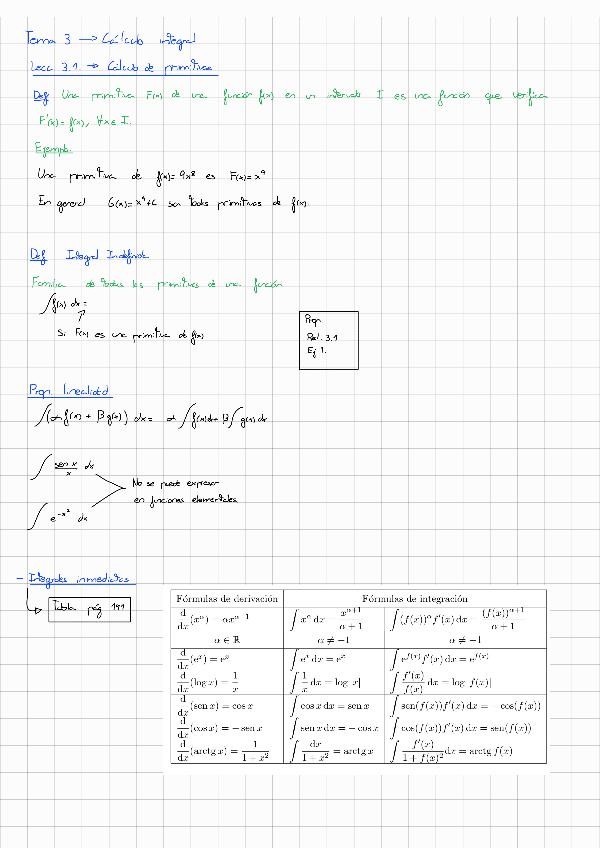 Tema 3 → Cálculo integral
Lecc 3.1 → Cálculo de primitivas
Def Una primitiva F(x) de una función f(x) en un intervalo I es una función que verifica
F'(x) = f(x), ∀x ∈ I.
Ejemplo.
Una primitiva de f(x) = 9x⁸ es F(x) = x⁹
En general G(x) = x⁹ + C son todas primitivas de f(x).
Def Integral Indefinida
Familia de todas las primitivas de una función
∫ f(x) dx =
Si F(x) es una primitiva de f(x)
Rel. 3.1
Ej 1.
Prop. linealidad
∫ (α f(x) + β g(x)) dx = α ∫ f(x) dx + β ∫ g(x) dx
∫ sen x / x dx
No se puede expresar
en funciones elementales
∫ e^(-x²) dx
- Integrales inmediatas
Tabla pág 141
Fórmulas de derivación Fórmulas de integración
d/dx (x^α) = αx^(α-1) ∫ x^α dx = x^(α+1)/(α+1) ∫ (f(x))^α f'(x) dx = (f(x))^(α+1)/(α+1)
α ∈ ℝ α ≠ -1 α ≠ -1
d/dx (eˣ) = eˣ ∫ eˣ dx = eˣ ∫ e^f(x) f'(x) dx = e^f(x)
d/dx (log x) = 1/x ∫ 1/x dx = log |x| ∫ f'(x)/f(x) dx = log |f(x)|
d/dx (sen x) = cos x ∫ cos x dx = sen x ∫ sen(f(x)) f'(x) dx = - cos(f(x))
d/dx (cos x) = - sen x ∫ sen x dx = - cos x ∫ cos(f(x)) f'(x) dx = sen(f(x))
d/dx (arctg x) = 1/(1 + x²) ∫ dx/(1 + x²) = arctg x ∫ f'(x)/(1 + f(x)²) dx = arctg f(x)